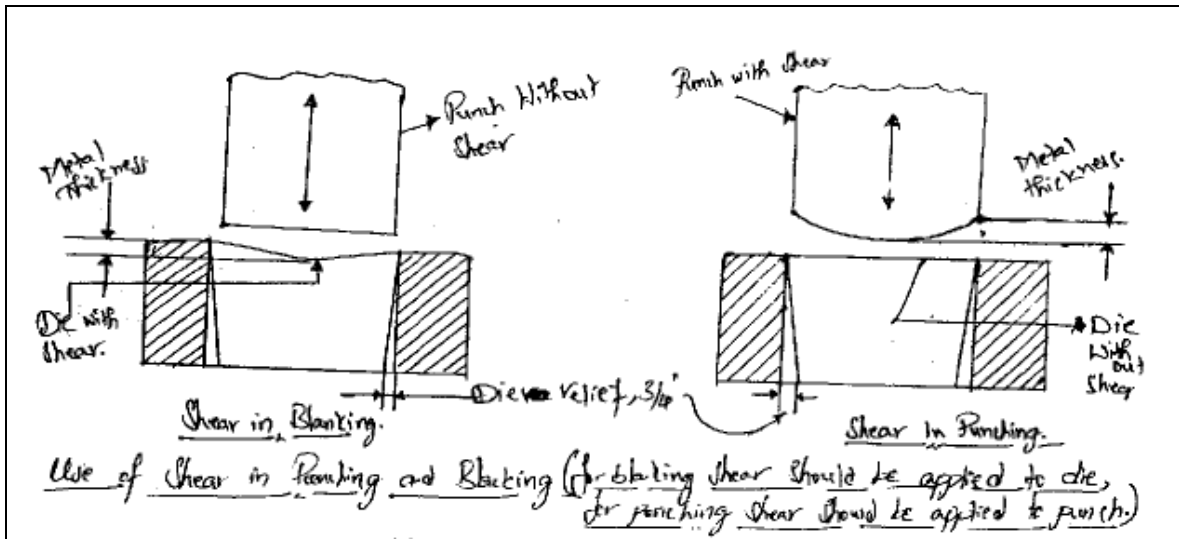 Metal
thickness
Punch Without
Shear
Die with
Shear.
Shear in Blanking.
Punch with Shear
Metal
thickness.
Die
With out
Shear
Die relief, 3/4°
Shear In Punching.
Use of Shear in Punching and Blanking (for blanking shear should be applied to die,
for punching shear should be applied to punch.)